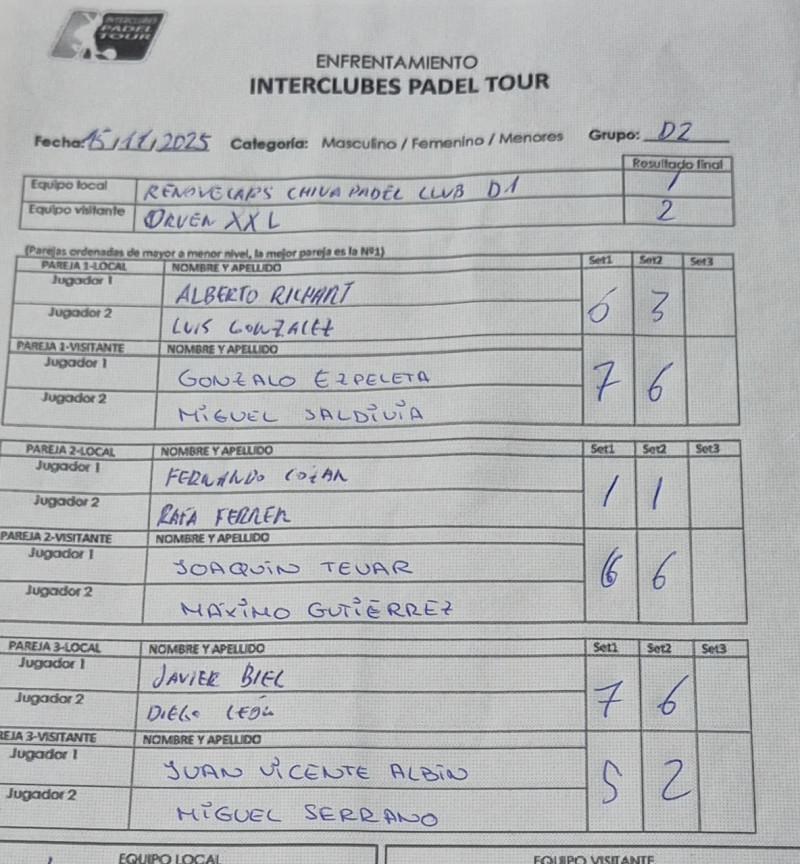 INTERCLUBES
PADEL
TOUR
ENFRENTAMIENTO
INTERCLUBES PADEL TOUR
Fecha: 15/11/2025 Categoría: Masculino / Femenino / Menores Grupo: D2
Resultado final
Equipo local RENOVECAPS CHIVA PADEL CLUB D1 1
Equipo visitante ORVEN XXL 2
(Parejas ordenadas de mayor a menor nivel, la mejor pareja es la Nº1)
PAREJA 1-LOCAL NOMBRE Y APELLIDO Set1 Set2 Set3
Jugador 1 ALBERTO RICHART
Jugador 2 LUIS GONZALEZ
6 3
PAREJA 1-VISITANTE NOMBRE Y APELLIDO
Jugador 1 GONZALO EZPELETA
Jugador 2 MIGUEL SALDIVIA
7 6
PAREJA 2-LOCAL NOMBRE Y APELLIDO Set1 Set2 Set3
Jugador 1 FERNANDO
Jugador 2 RAFA FERRER
1 1
PAREJA 2-VISITANTE NOMBRE Y APELLIDO
Jugador 1 JOAQUIN TEVAR
Jugador 2 MÁXIMO GUTIÉRREZ
6 6
PAREJA 3-LOCAL NOMBRE Y APELLIDO Set1 Set2 Set3
Jugador 1 JAVIER BIEL
Jugador 2 DIEGO LEÓN
7 6
EJA 3-VISITANTE NOMBRE Y APELLIDO
Jugador 1 JUAN VICENTE ALBIN
Jugador 2 MIGUEL SERRANO
5 2
EQUIPO LOCAL EQUIPO VISITANTE